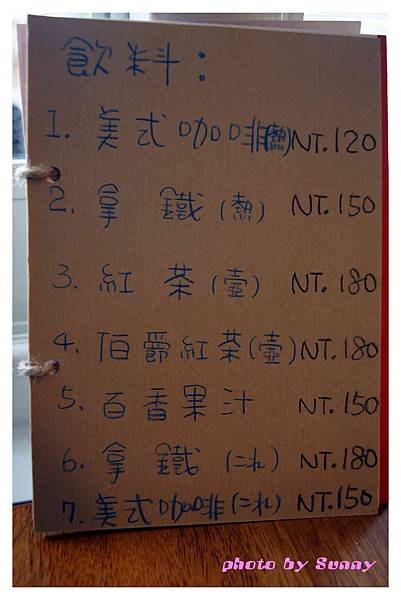 飲料：
1. 美式咖啡(熱) NT.120
2. 拿鐵(熱) NT.150
3. 紅茶(壺) NT.180
4. 伯爵紅茶(壺) NT.180
5. 百香果汁 NT.150
6. 拿鐵(冰) NT.180
7. 美式咖啡(冰) NT.150
photo by Sunny